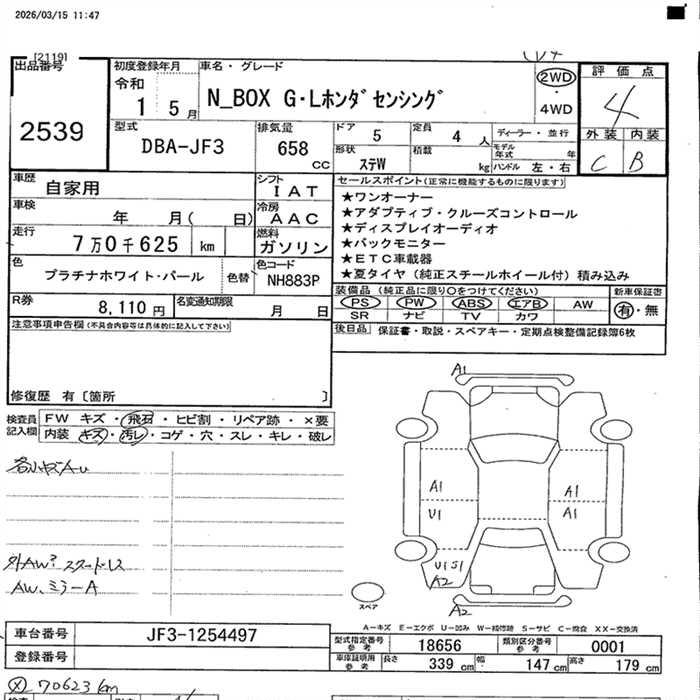 2026/03/15 11:47
[2119]
出品番号
2539
初度登録年月
令和
1 5月
車名・グレード
N_BOX G・Lホンダセンシング
2WD
4WD
評価点
4
外装 内装
C B
型式
DBA-JF3
排気量
658 CC
ドア 5
定員 4 人
ディーラー・並行
形状 ステW
積載 kg
モデル年式 年
ハンドル 左・右
車歴
自家用
シフト
IAT
車検
年 月( 日)
冷房
AAC
走行
7万0千625 km
燃料
ガソリン
色
プラチナホワイト・パール
色替
色コード
NH883P
R券
8,110円
名変通知期限
月 日
セールスポイント(正常に機能するものに限ります)
★ワンオーナー
★アダプティブ・クルーズコントロール
★ディスプレイオーディオ
★バックモニター
★ETC車載器
★夏タイヤ(純正スチールホイール付)積み込み
装備品(純正品に限り○をつけてください)
新車保証書
PS PW ABS エアB AW
SR ナビ TV カワ
有・無
後日品 保証書・取説・スペアキー・定期点検整備記録簿6枚
注意事項申告欄(不具合内容等は具体的に記入して下さい)
修復歴 有〔箇所 〕
検査員記入欄
FW キズ・飛石・ヒビ割・リペア跡・×要
内装 キズ・汚レ・コゲ・穴・スレ・キレ・破レ
AW、ミラーA
A1
A1
U1
A1
A1
U1 S1
A2
A2
スペア
A−キズ E−エクボ U−凹み W−補修跡 S−サビ C−腐食 XX−交換済
車台番号 JF3-1254497
登録番号
型式指定番号参考 18656
類別区分番号参考 0001
車庫証明用参考 長さ 339 cm 幅 147 cm 高さ 179 cm
70623 km